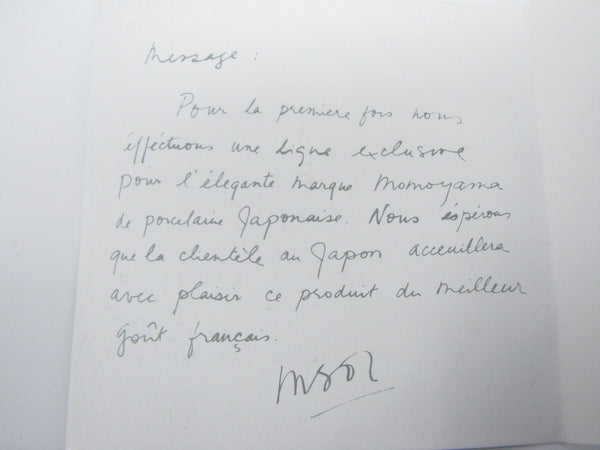 Message :
Pour la première fois nous
éffectuons une ligne exclusive
pour l'élegante marque Momoyama
de porcelaine Japonaise. Nous éspérons
que la clientèle au Japon acceuillera
avec plaisir ce produit du meilleur
goût français.